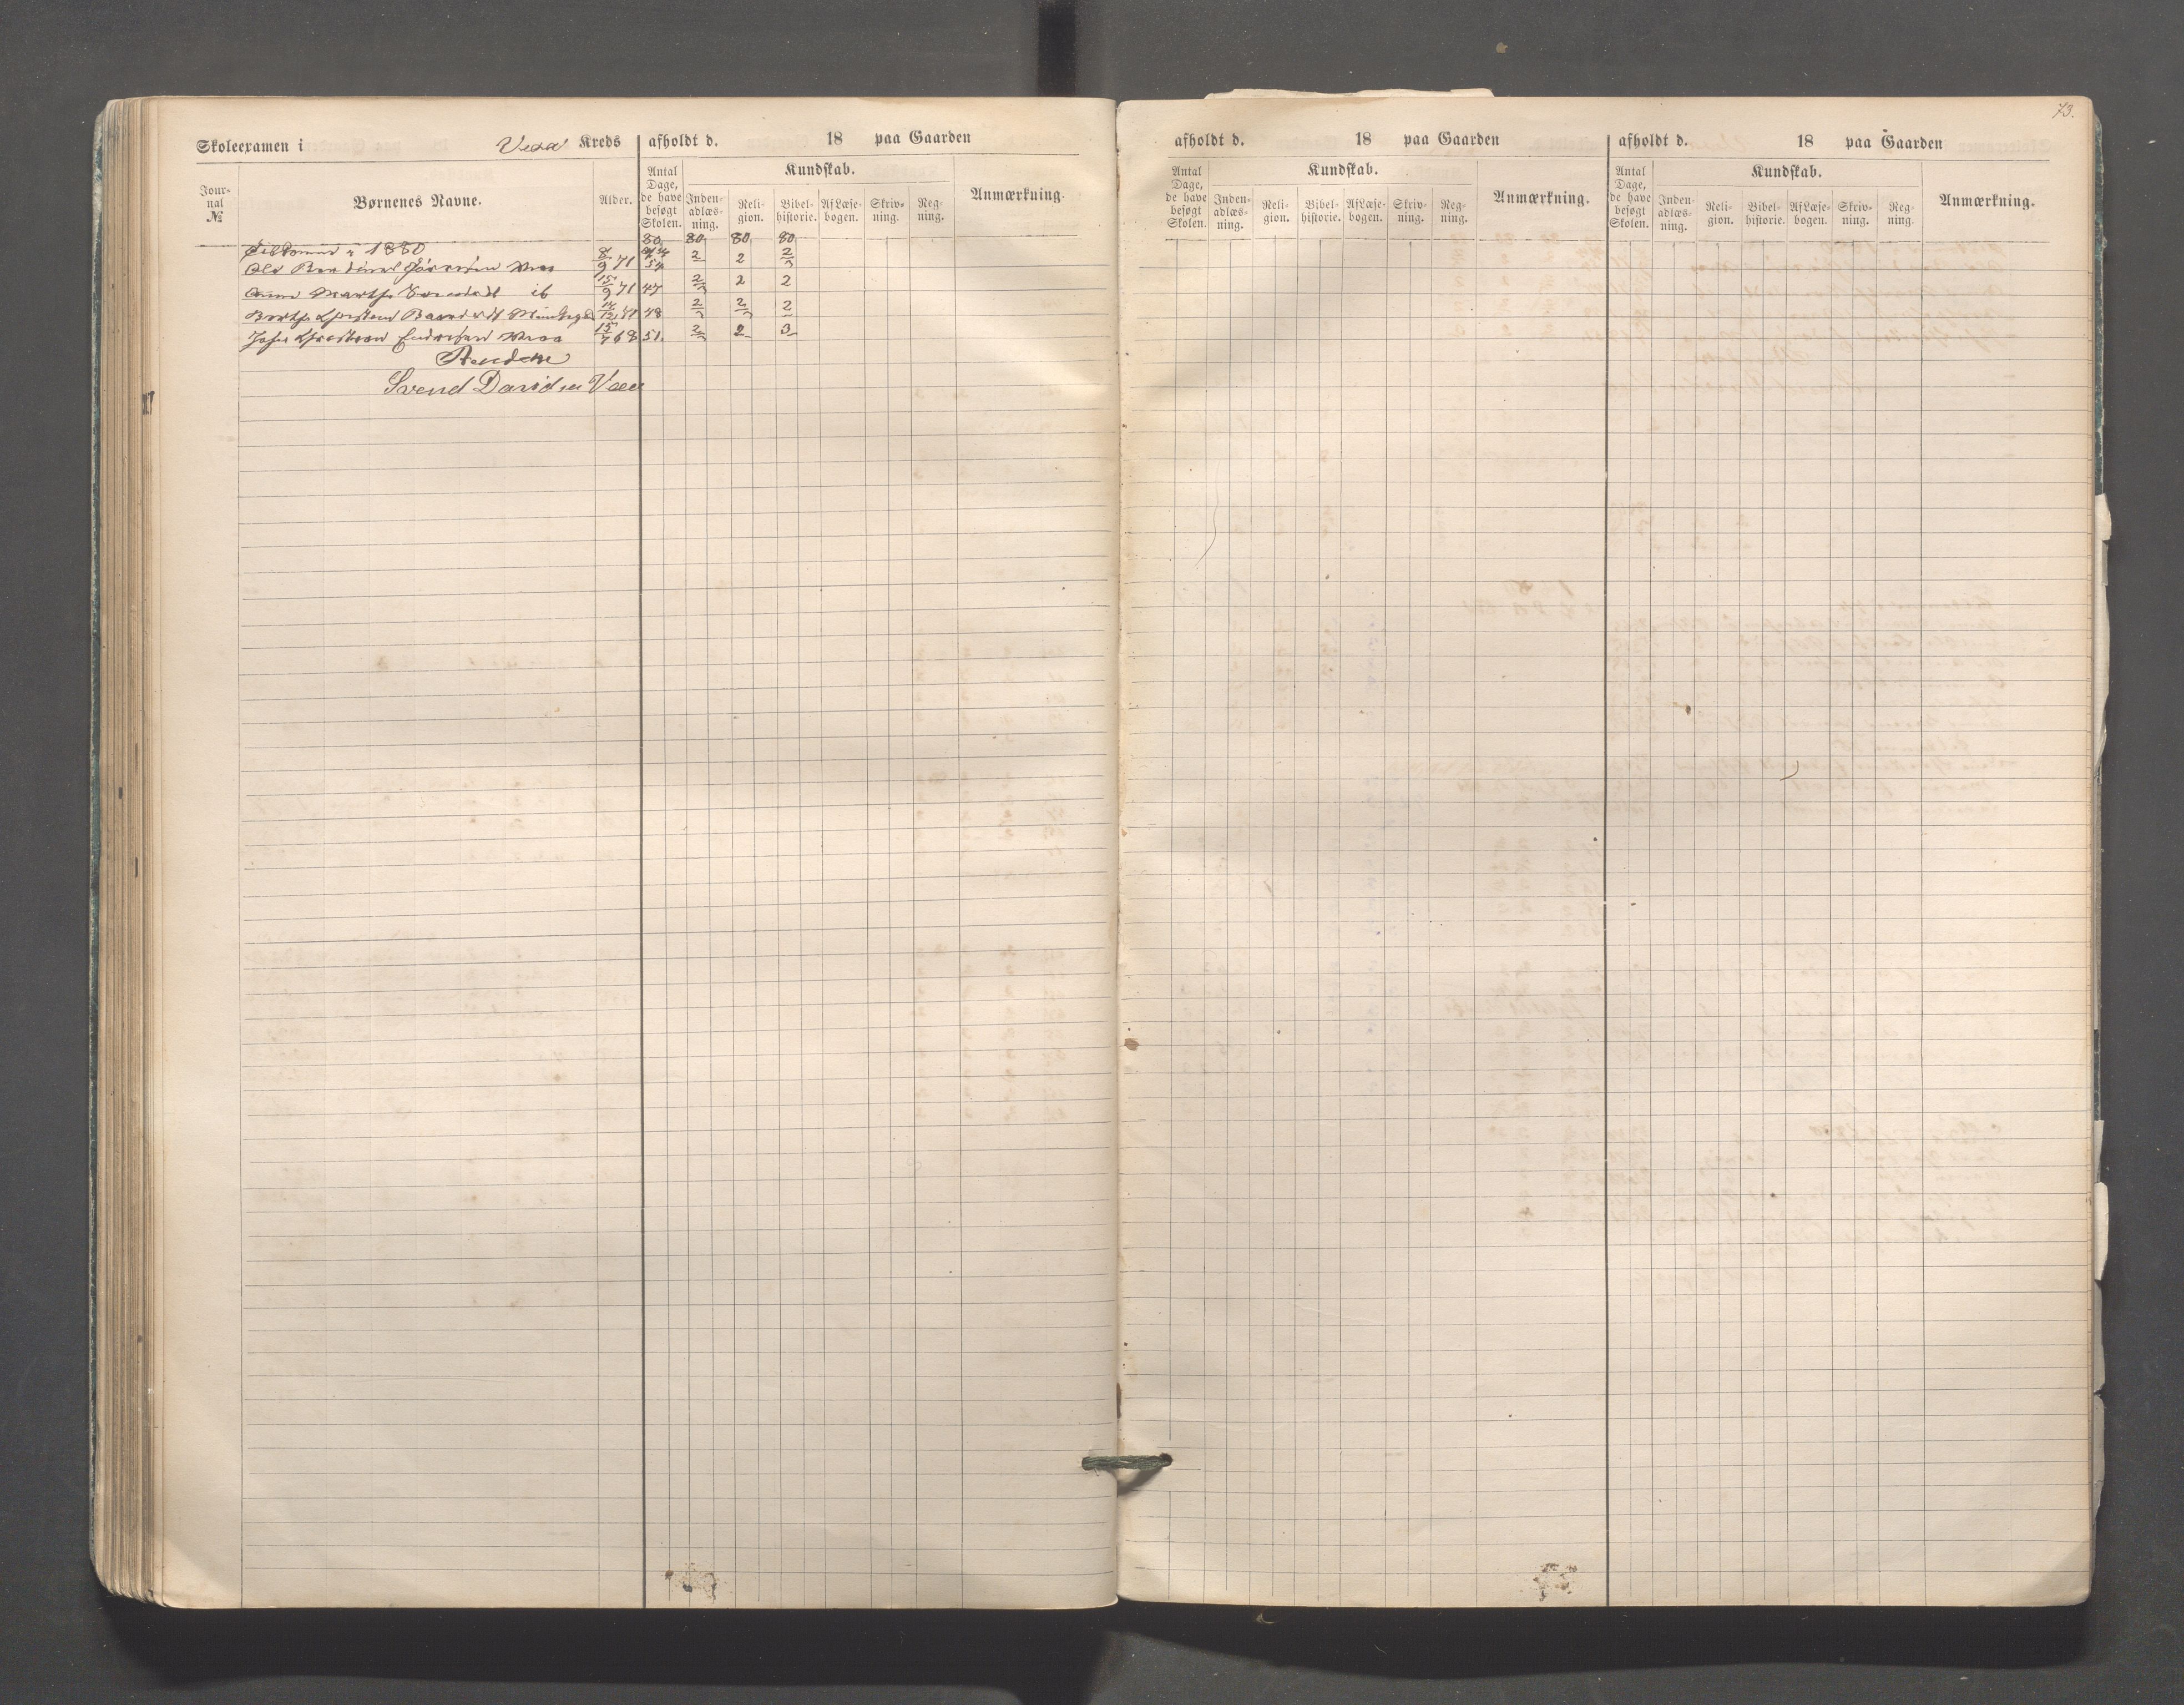 73.
Skoleexamen i Kreds afholdt d. 18 paa Gaarden
Jour-
nal
№
Børnenes Navne.
Alder.
Antal
Dage,
de have
besøgt
Skolen.
Kundskab.
Inden-
adlæs-
ning.
Reli-
gion.
Bibel-
historie.
Af Læse-
bogen.
Skriv-
ning.
Reg-
ning.
Anmærkning.
1880 80 80 80 80
Ole 8/9 71 54 2 2 2/3
Marthe ib 15/9 71 47 2/3 2 2
48 2/3 2/3 2
15/7 68 51 2/3 2 3
Svend
afholdt d. 18 paa Gaarden
Antal
Dage,
de have
besøgt
Skolen.
Kundskab.
Inden-
adlæs-
ning.
Reli-
gion.
Bibel-
historie.
Af Læse-
bogen.
Skriv-
ning.
Reg-
ning.
Anmærkning.
afholdt d. 18 paa Gaarden
Antal
Dage,
de have
besøgt
Skolen.
Kundskab.
Inden-
adlæs-
ning.
Reli-
gion.
Bibel-
historie.
Af Læse-
bogen.
Skriv-
ning.
Reg-
ning.
Anmærkning.